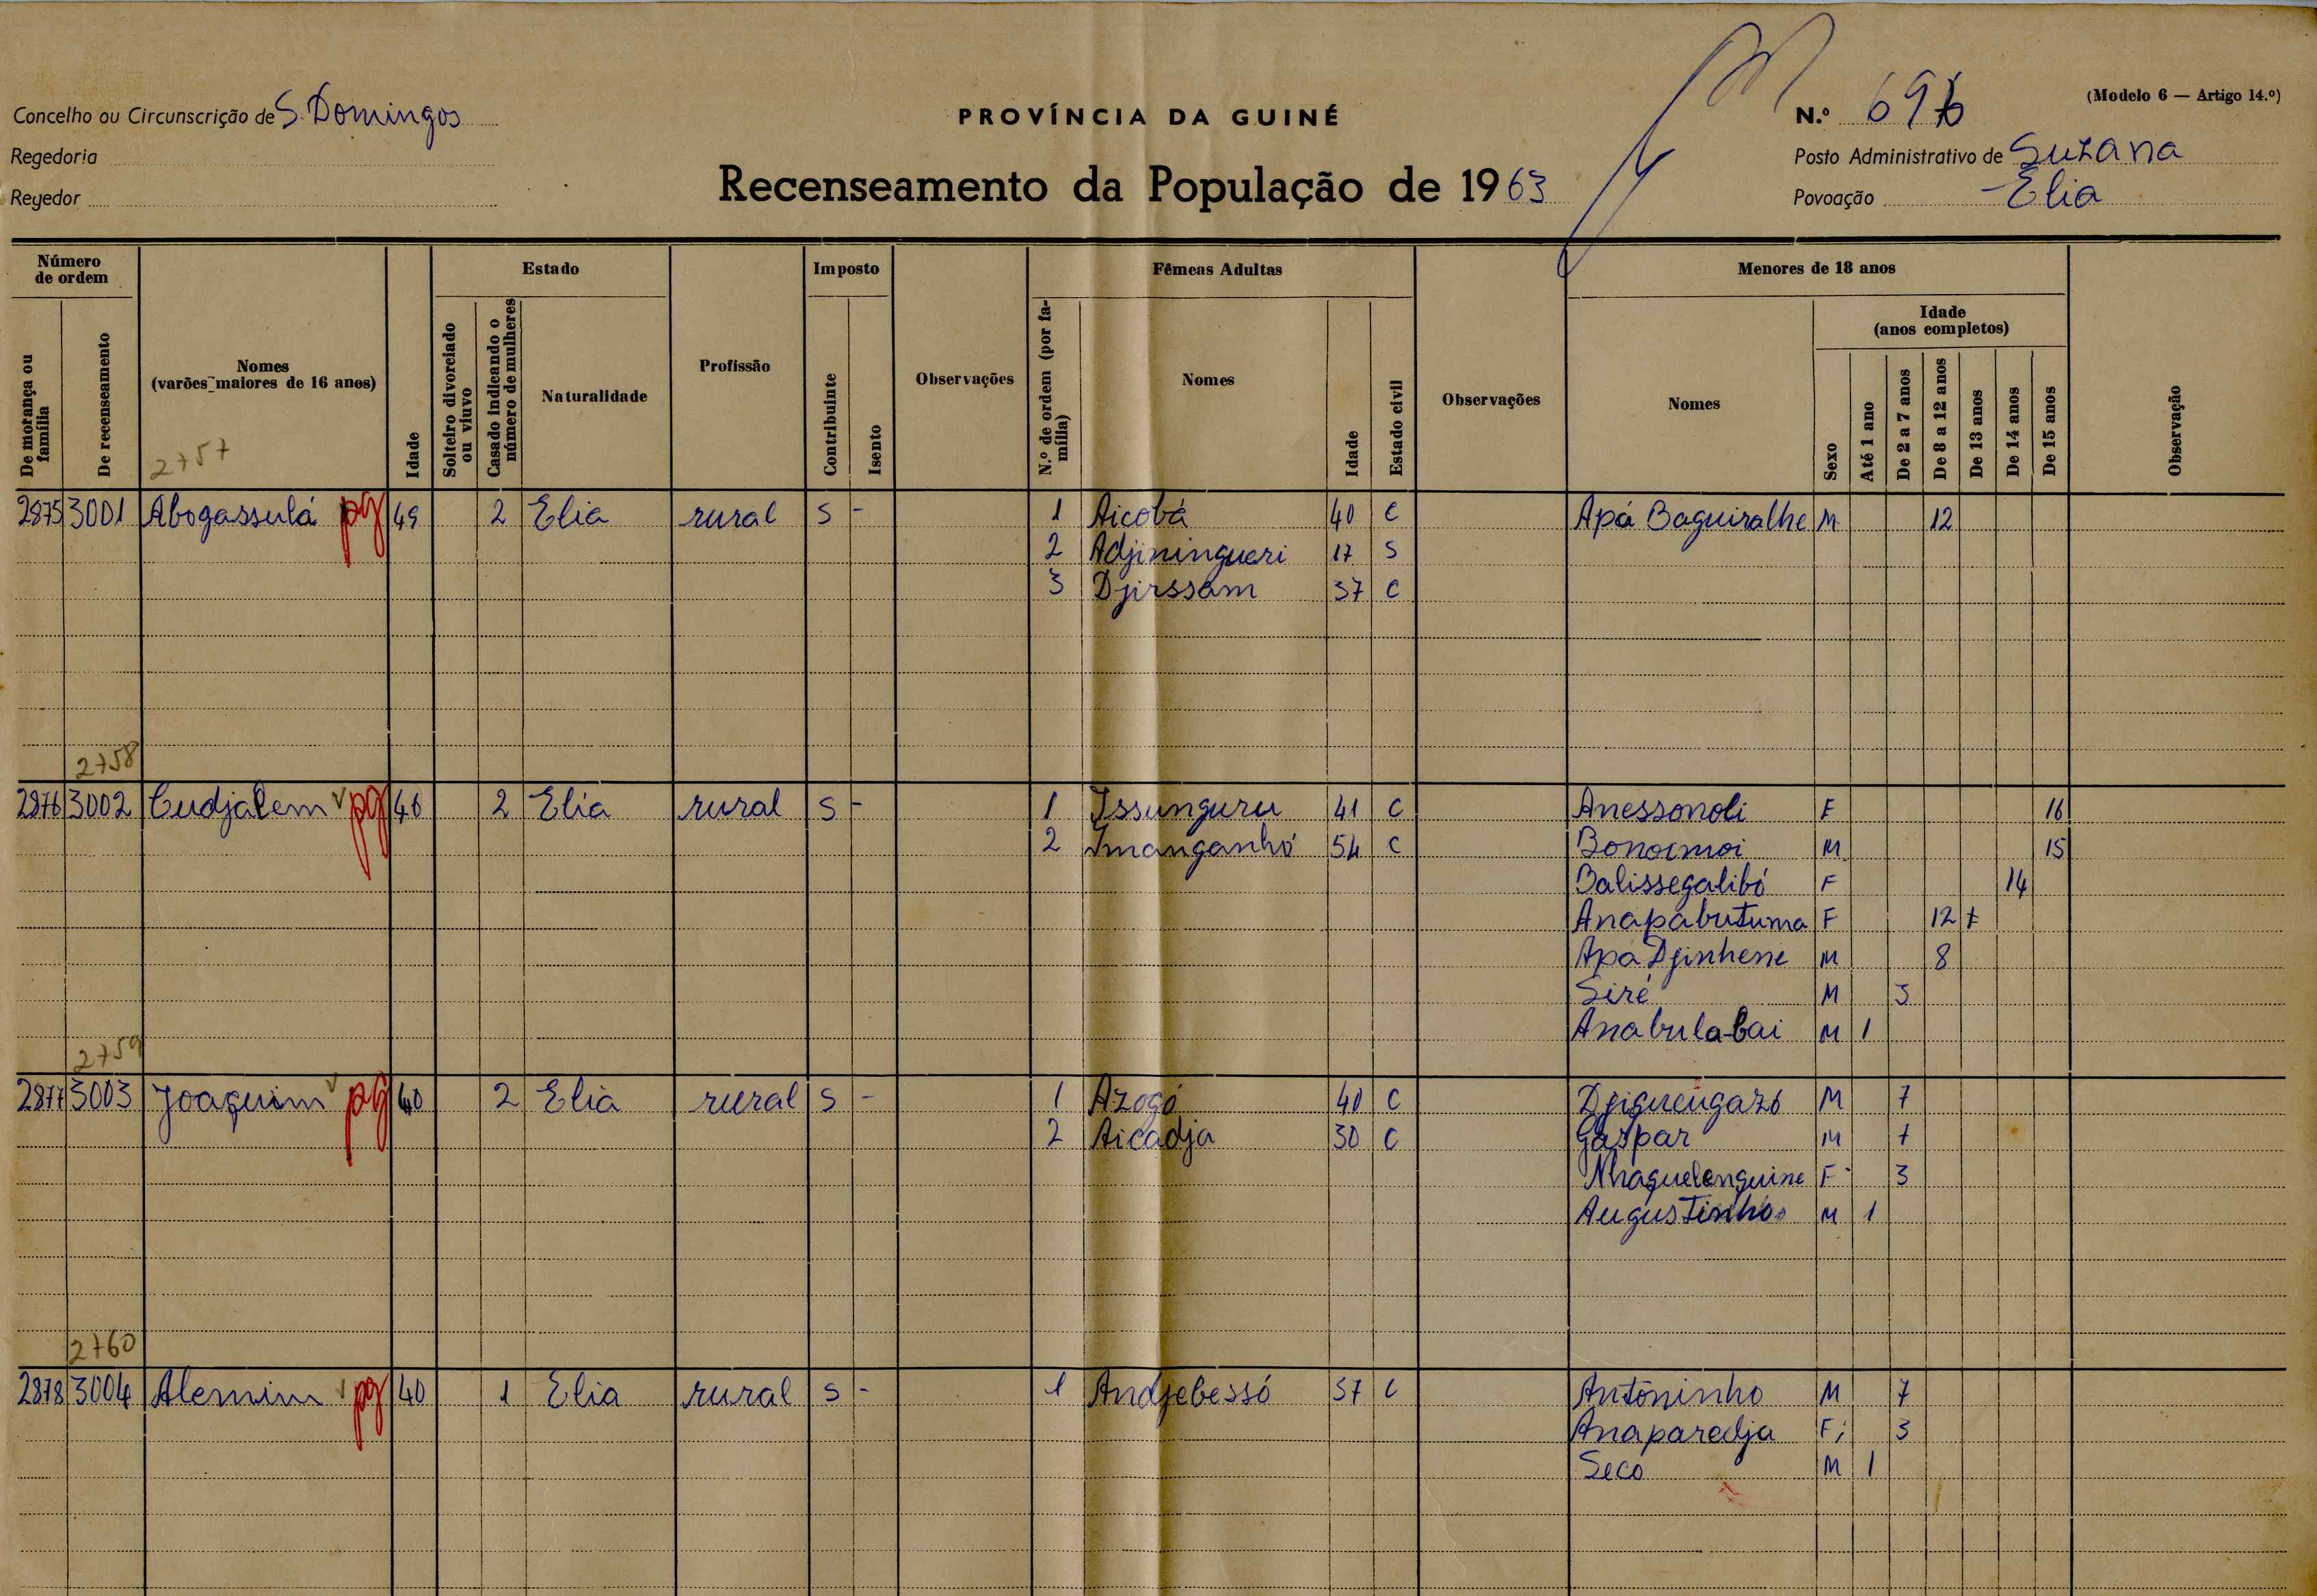 Concelho ou Circunscrição de S. Domingos
Regedoria
Regedor
PROVÍNCIA DA GUINÉ
Recenseamento da População de 1963
(Modelo 6 — Artigo 14.º)
N.º 696
Posto Administrativo de Suzana
Povoação Elia
Número de ordem
De morança ou família
De recenseamento
Nomes
(varões maiores de 16 anos)
2757
Idade
Estado
Solteiro divorciado ou viuvo
Casado indicando o número de mulheres
Naturalidade
Profissão
Imposto
Contribuinte
Isento
Observações
Fêmeas Adultas
N.º de ordem (por família)
Nomes
Idade
Estado civil
Observações
Menores de 18 anos
Nomes
Sexo
Idade
(anos completos)
Até 1 ano
De 2 a 7 anos
De 8 a 12 anos
De 13 anos
De 14 anos
De 15 anos
Observação
2875 3001 Abogassulá pg 49 2 Elia rural S - 1 Aicobá 40 C Apá Baguiralhe M 12
2 Adjiningueri 17 S
3 Djirssam 37 C
2758
2876 3002 Cudjalem pg 46 2 Elia rural S - 1 Issunguru 41 C Anessonoli F 16
2 Imanganhó 54 C Bonoimoi M 15
Balissegalibó F 14
Anapabutuma F 12
Apá Djinhene M 8
Siré M 3
Anabulabai M 1
2759
2877 3003 Joaquim pg 40 2 Elia rural S - 1 Azogó 40 C Djiguengazó M 7
2 Aicadja 30 C Gaspar M 7
Nhaguelenguine F 3
Augustinho M 1
2760
2878 3004 Alemim pg 40 1 Elia rural S - 1 Andjebessó 37 C Antóninho M 7
Anaparedja F 3
Seco M 1